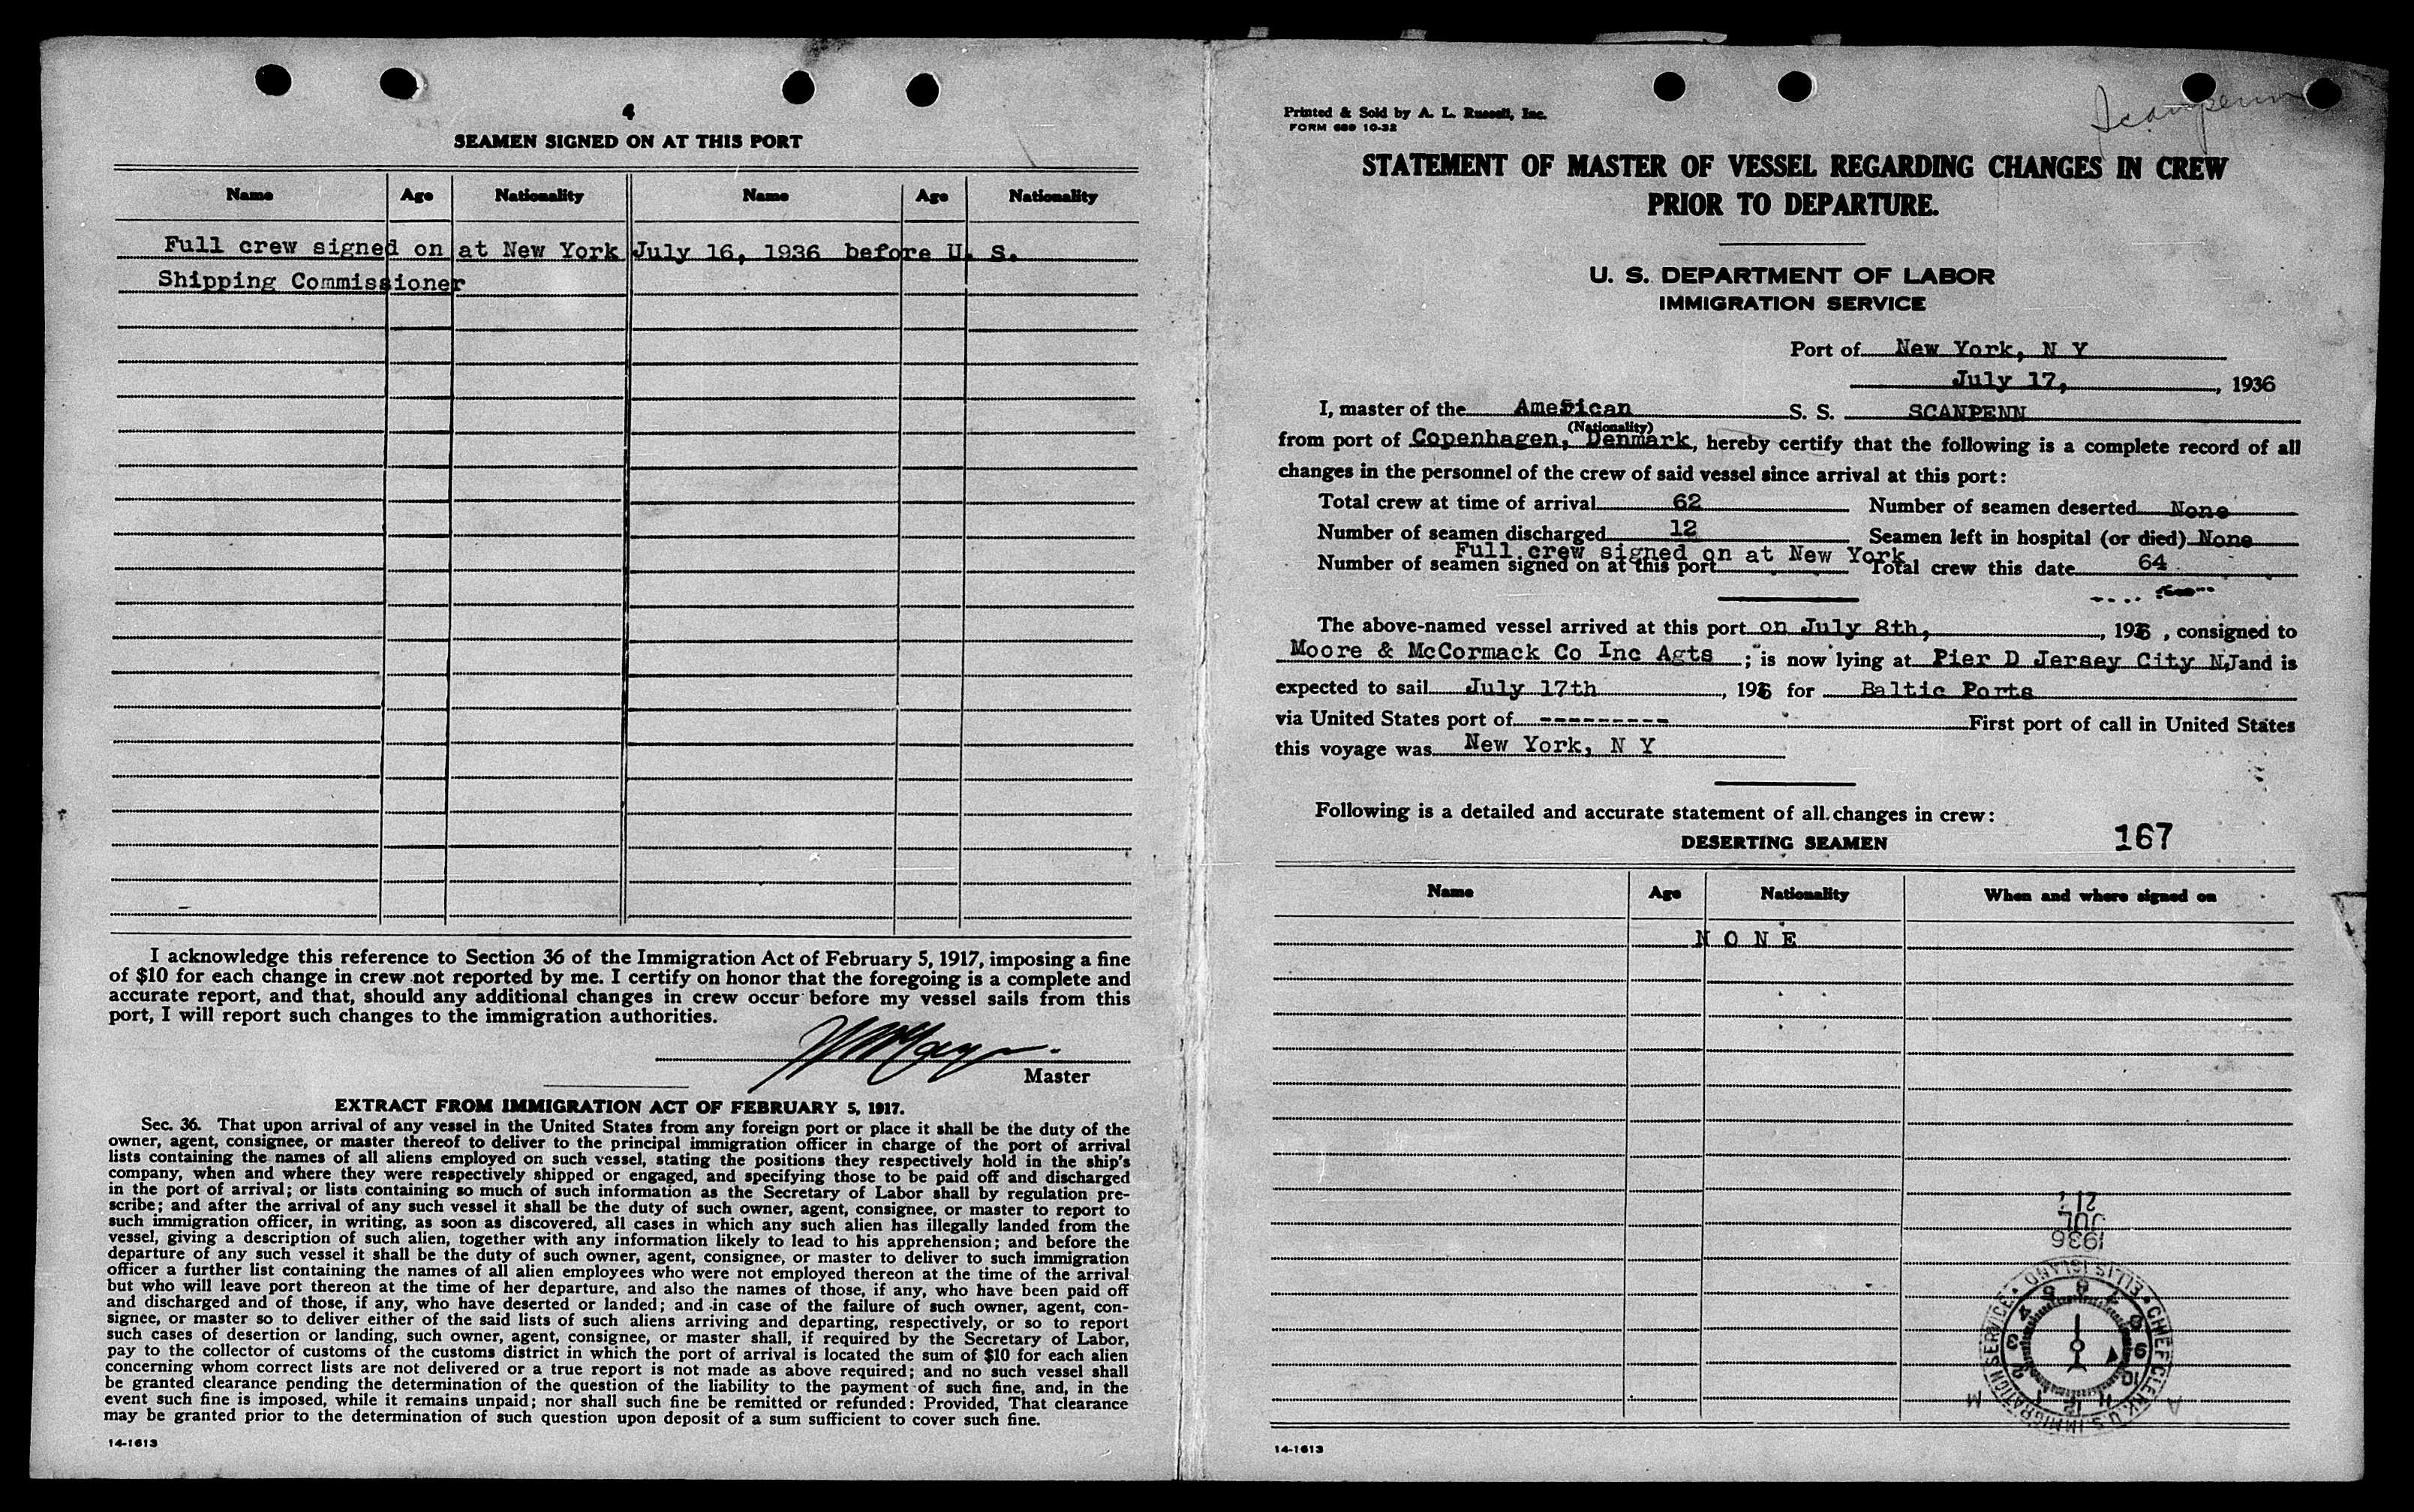 4
SEAMEN SIGNED ON AT THIS PORT
Name Age Nationality Name Age Nationality
Full crew signed on at New York July 16, 1936 before U. S.
Shipping Commissioner
I acknowledge this reference to Section 36 of the Immigration Act of February 5, 1917, imposing a fine
of $10 for each change in crew not reported by me. I certify on honor that the foregoing is a complete and
accurate report, and that, should any additional changes in crew occur before my vessel sails from this
port, I will report such changes to the immigration authorities.
Master
EXTRACT FROM IMMIGRATION ACT OF FEBRUARY 5, 1917.
Sec. 36. That upon arrival of any vessel in the United States from any foreign port or place it shall be the duty of the
owner, agent, consignee, or master thereof to deliver to the principal immigration officer in charge of the port of arrival
lists containing the names of all aliens employed on such vessel, stating the positions they respectively hold in the ship's
company, when and where they were respectively shipped or engaged, and specifying those to be paid off and discharged
in the port of arrival; or lists containing so much of such information as the Secretary of Labor shall by regulation pre-
scribe; and after the arrival of any such vessel it shall be the duty of such owner, agent, consignee, or master to report to
such immigration officer, in writing, as soon as discovered, all cases in which any such alien has illegally landed from the
vessel, giving a description of such alien, together with any information likely to lead to his apprehension; and before the
departure of any such vessel it shall be the duty of such owner, agent, consignee, or master to deliver to such immigration
officer a further list containing the names of all alien employees who were not employed thereon at the time of the arrival
but who will leave port thereon at the time of her departure, and also the names of those, if any, who have been paid off
and discharged and of those, if any, who have deserted or landed; and in case of the failure of such owner, agent, con-
signee, or master so to deliver either of the said lists of such aliens arriving and departing, respectively, or so to report
such cases of desertion or landing, such owner, agent, consignee, or master shall, if required by the Secretary of Labor,
pay to the collector of customs of the customs district in which the port of arrival is located the sum of $10 for each alien
concerning whom correct lists are not delivered or a true report is not made as above required; and no such vessel shall
be granted clearance pending the determination of the question of the liability to the payment of such fine, and, in the
event such fine is imposed, while it remains unpaid; nor shall such fine be remitted or refunded: Provided, That clearance
may be granted prior to the determination of such question upon deposit of a sum sufficient to cover such fine.
14-1613
Scanpenn
Printed & Sold by A. L. Russell, Inc.
FORM 689 10-32
STATEMENT OF MASTER OF VESSEL REGARDING CHANGES IN CREW
PRIOR TO DEPARTURE.
U. S. DEPARTMENT OF LABOR
IMMIGRATION SERVICE
Port of New York, N Y
July 17, , 1936
I, master of the American S. S. SCANPENN
(Nationality)
from port of Copenhagen, Denmark, hereby certify that the following is a complete record of all
changes in the personnel of the crew of said vessel since arrival at this port:
Total crew at time of arrival 62 Number of seamen deserted None
Number of seamen discharged 12 Seamen left in hospital (or died) None
Full crew signed on at New York
Number of seamen signed on at this port Total crew this date 64
The above-named vessel arrived at this port on July 8th, , 1936 , consigned to
Moore & McCormack Co Inc Agts ; is now lying at Pier D Jersey City NJ and is
expected to sail July 17th , 1936 for Baltic Ports
via United States port of --------- First port of call in United States
this voyage was New York, N Y
Following is a detailed and accurate statement of all changes in crew:
DESERTING SEAMEN
167
Name Age Nationality When and where signed on
N O N E
1936
JUL
21
CHIEF CLERK, U.S. IMMIGRATION SERVICE • ELLIS ISLAND •
A M
1 2 3 4 5 6 7 8 9 10 11 12
14-1613